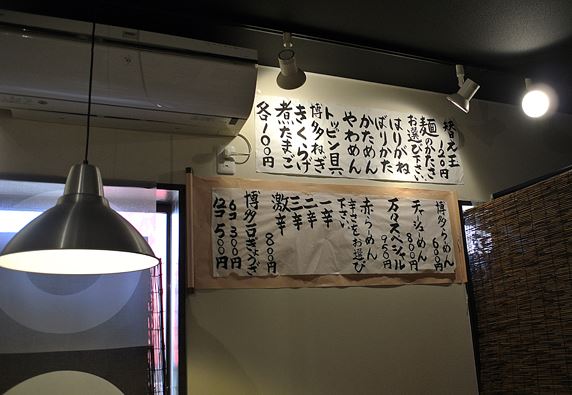 替え玉
100円
麺のかたさ
お選び下さい
はりがね
ばりかた
かためん
やわめん
トッピン具
博多ねぎ
きくらげ
煮たまご
各100円
博多らーめん
チャーシューめん
800円
万々スペシャル
950円
赤らーめん
辛さをお選び
下さい
一辛
二辛
三辛
激辛
800円
6コ300円
12コ500円